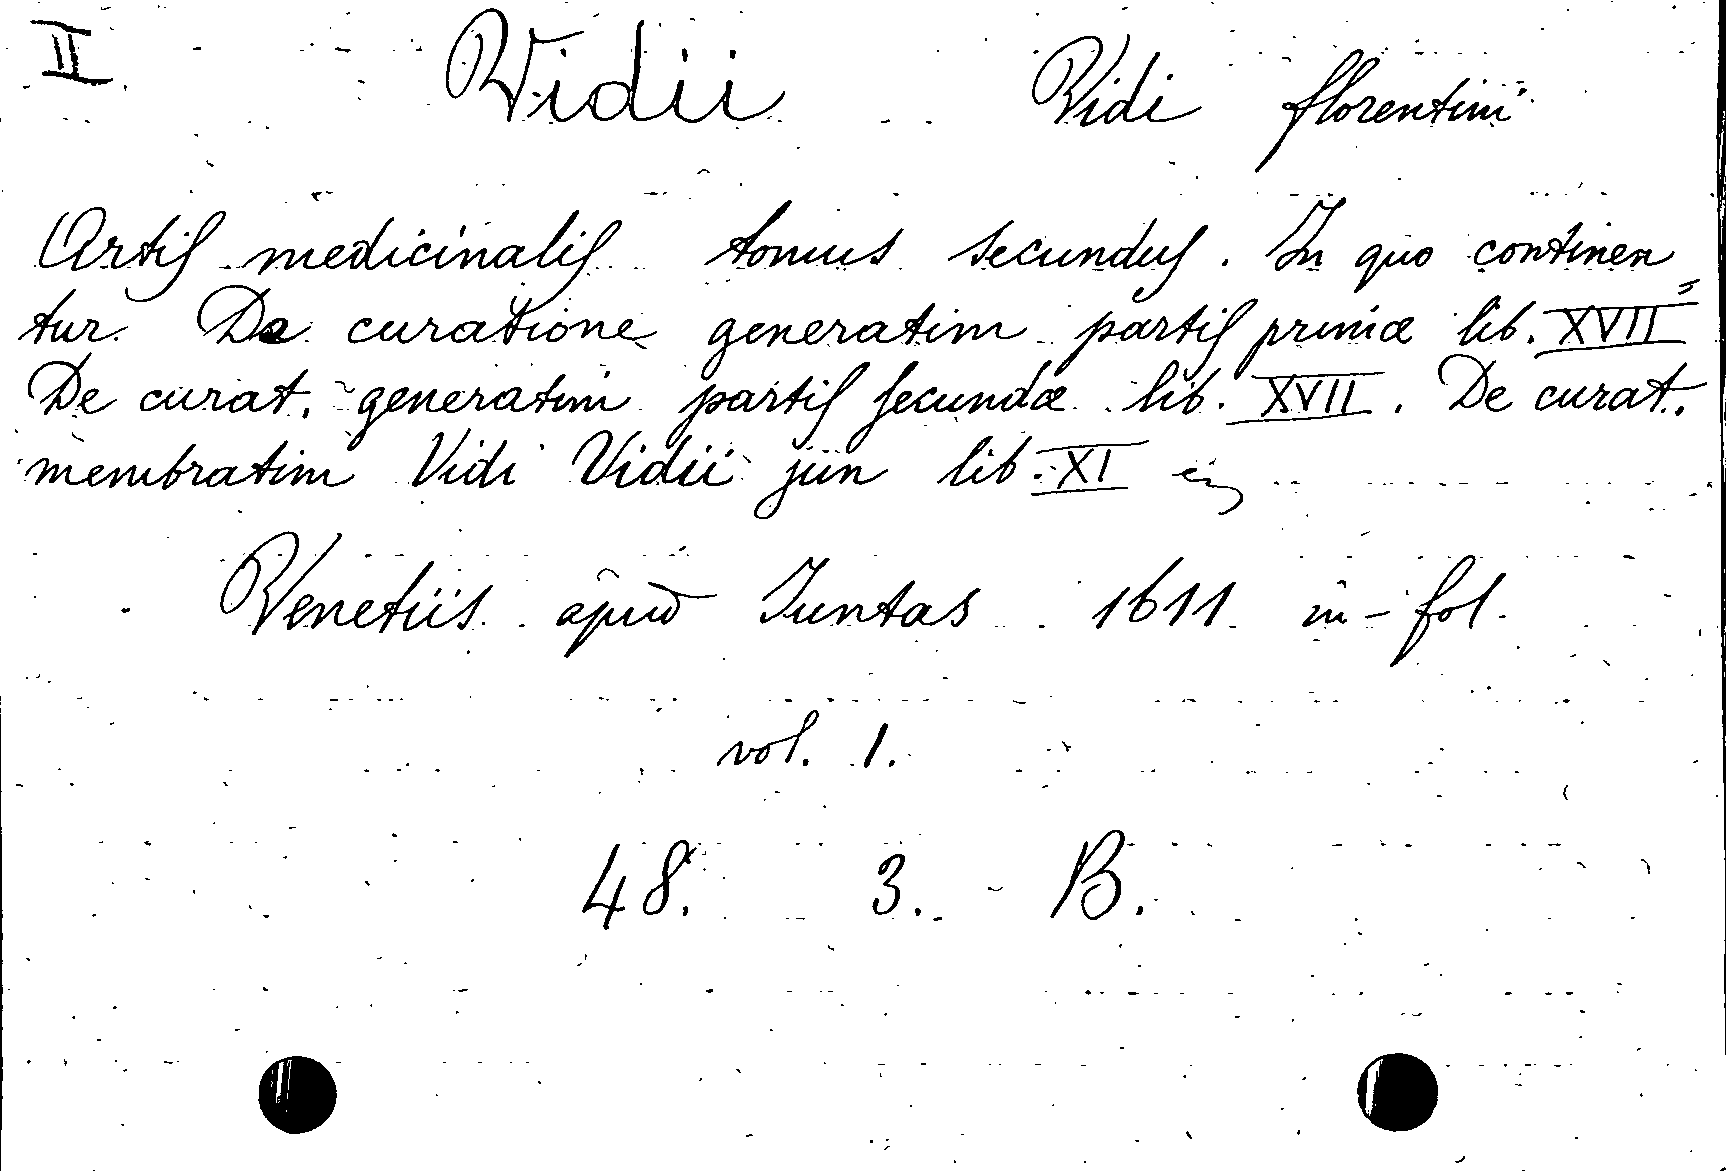 II Vidii Vidi florentini
Artis medicinalis tomus secundus. In quo continen=
tur De curatione generatim partis primæ lib. XVII
De curat. generatim partis secundæ lib. XVII. De curat.
membratim Vidi Vidii jun lib. XI
Venetiis apud Iuntas 1611 in-fol.
vol. 1.
48. 3. B.